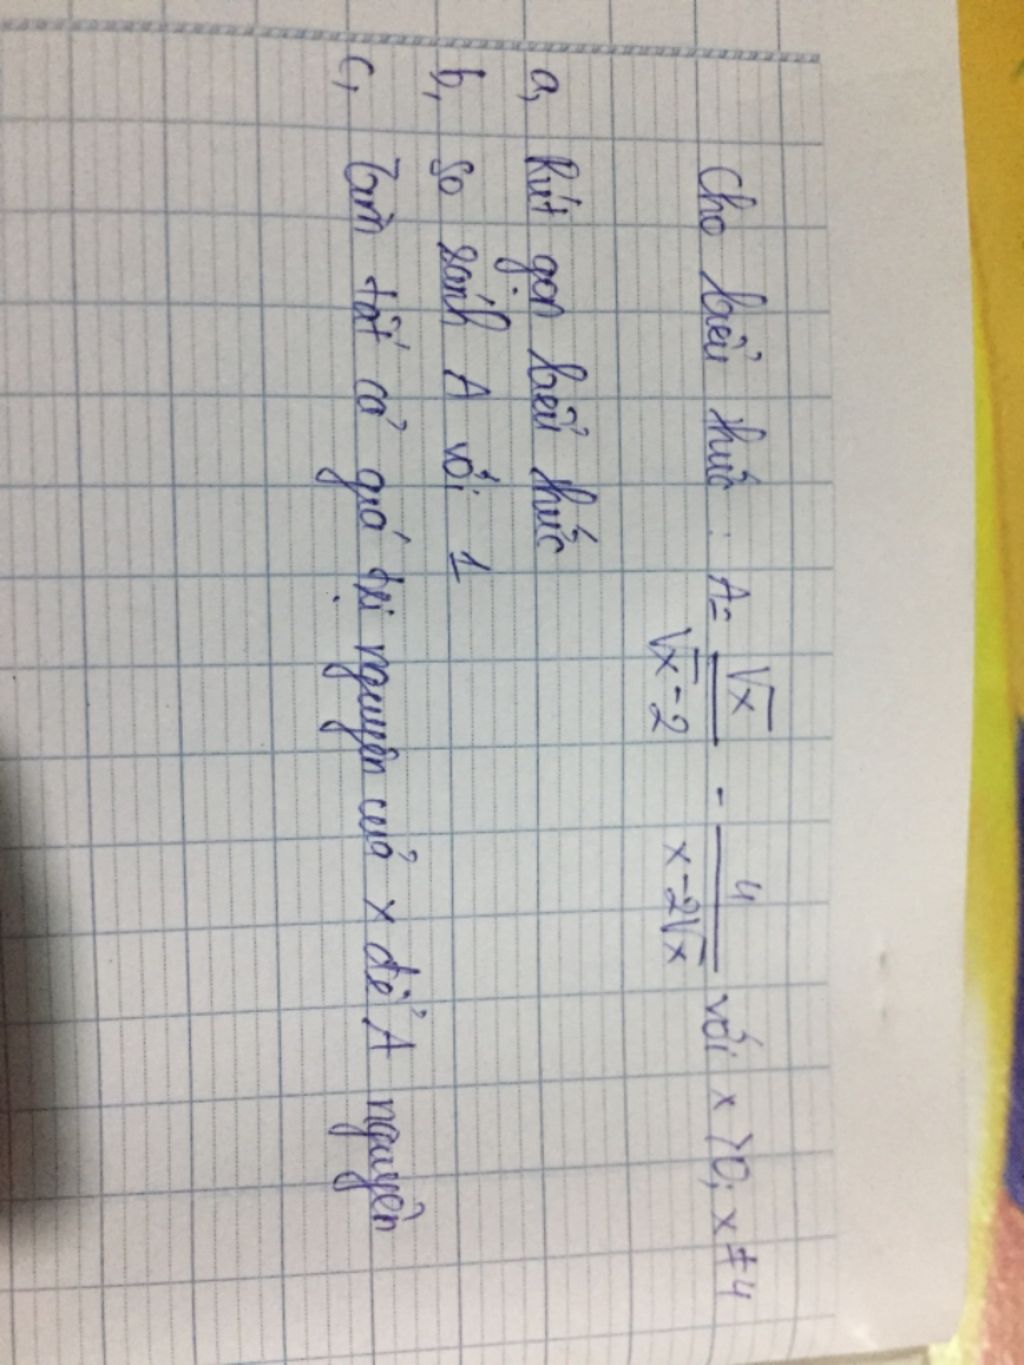 Cho biểu thức : A = √x / (√x - 2) - 4 / (x - 2√x) với x > 0; x ≠ 4
a, Rút gọn biểu thức
b, So sánh A với 1
c, Tìm tất cả giá trị nguyên của x để A nguyên